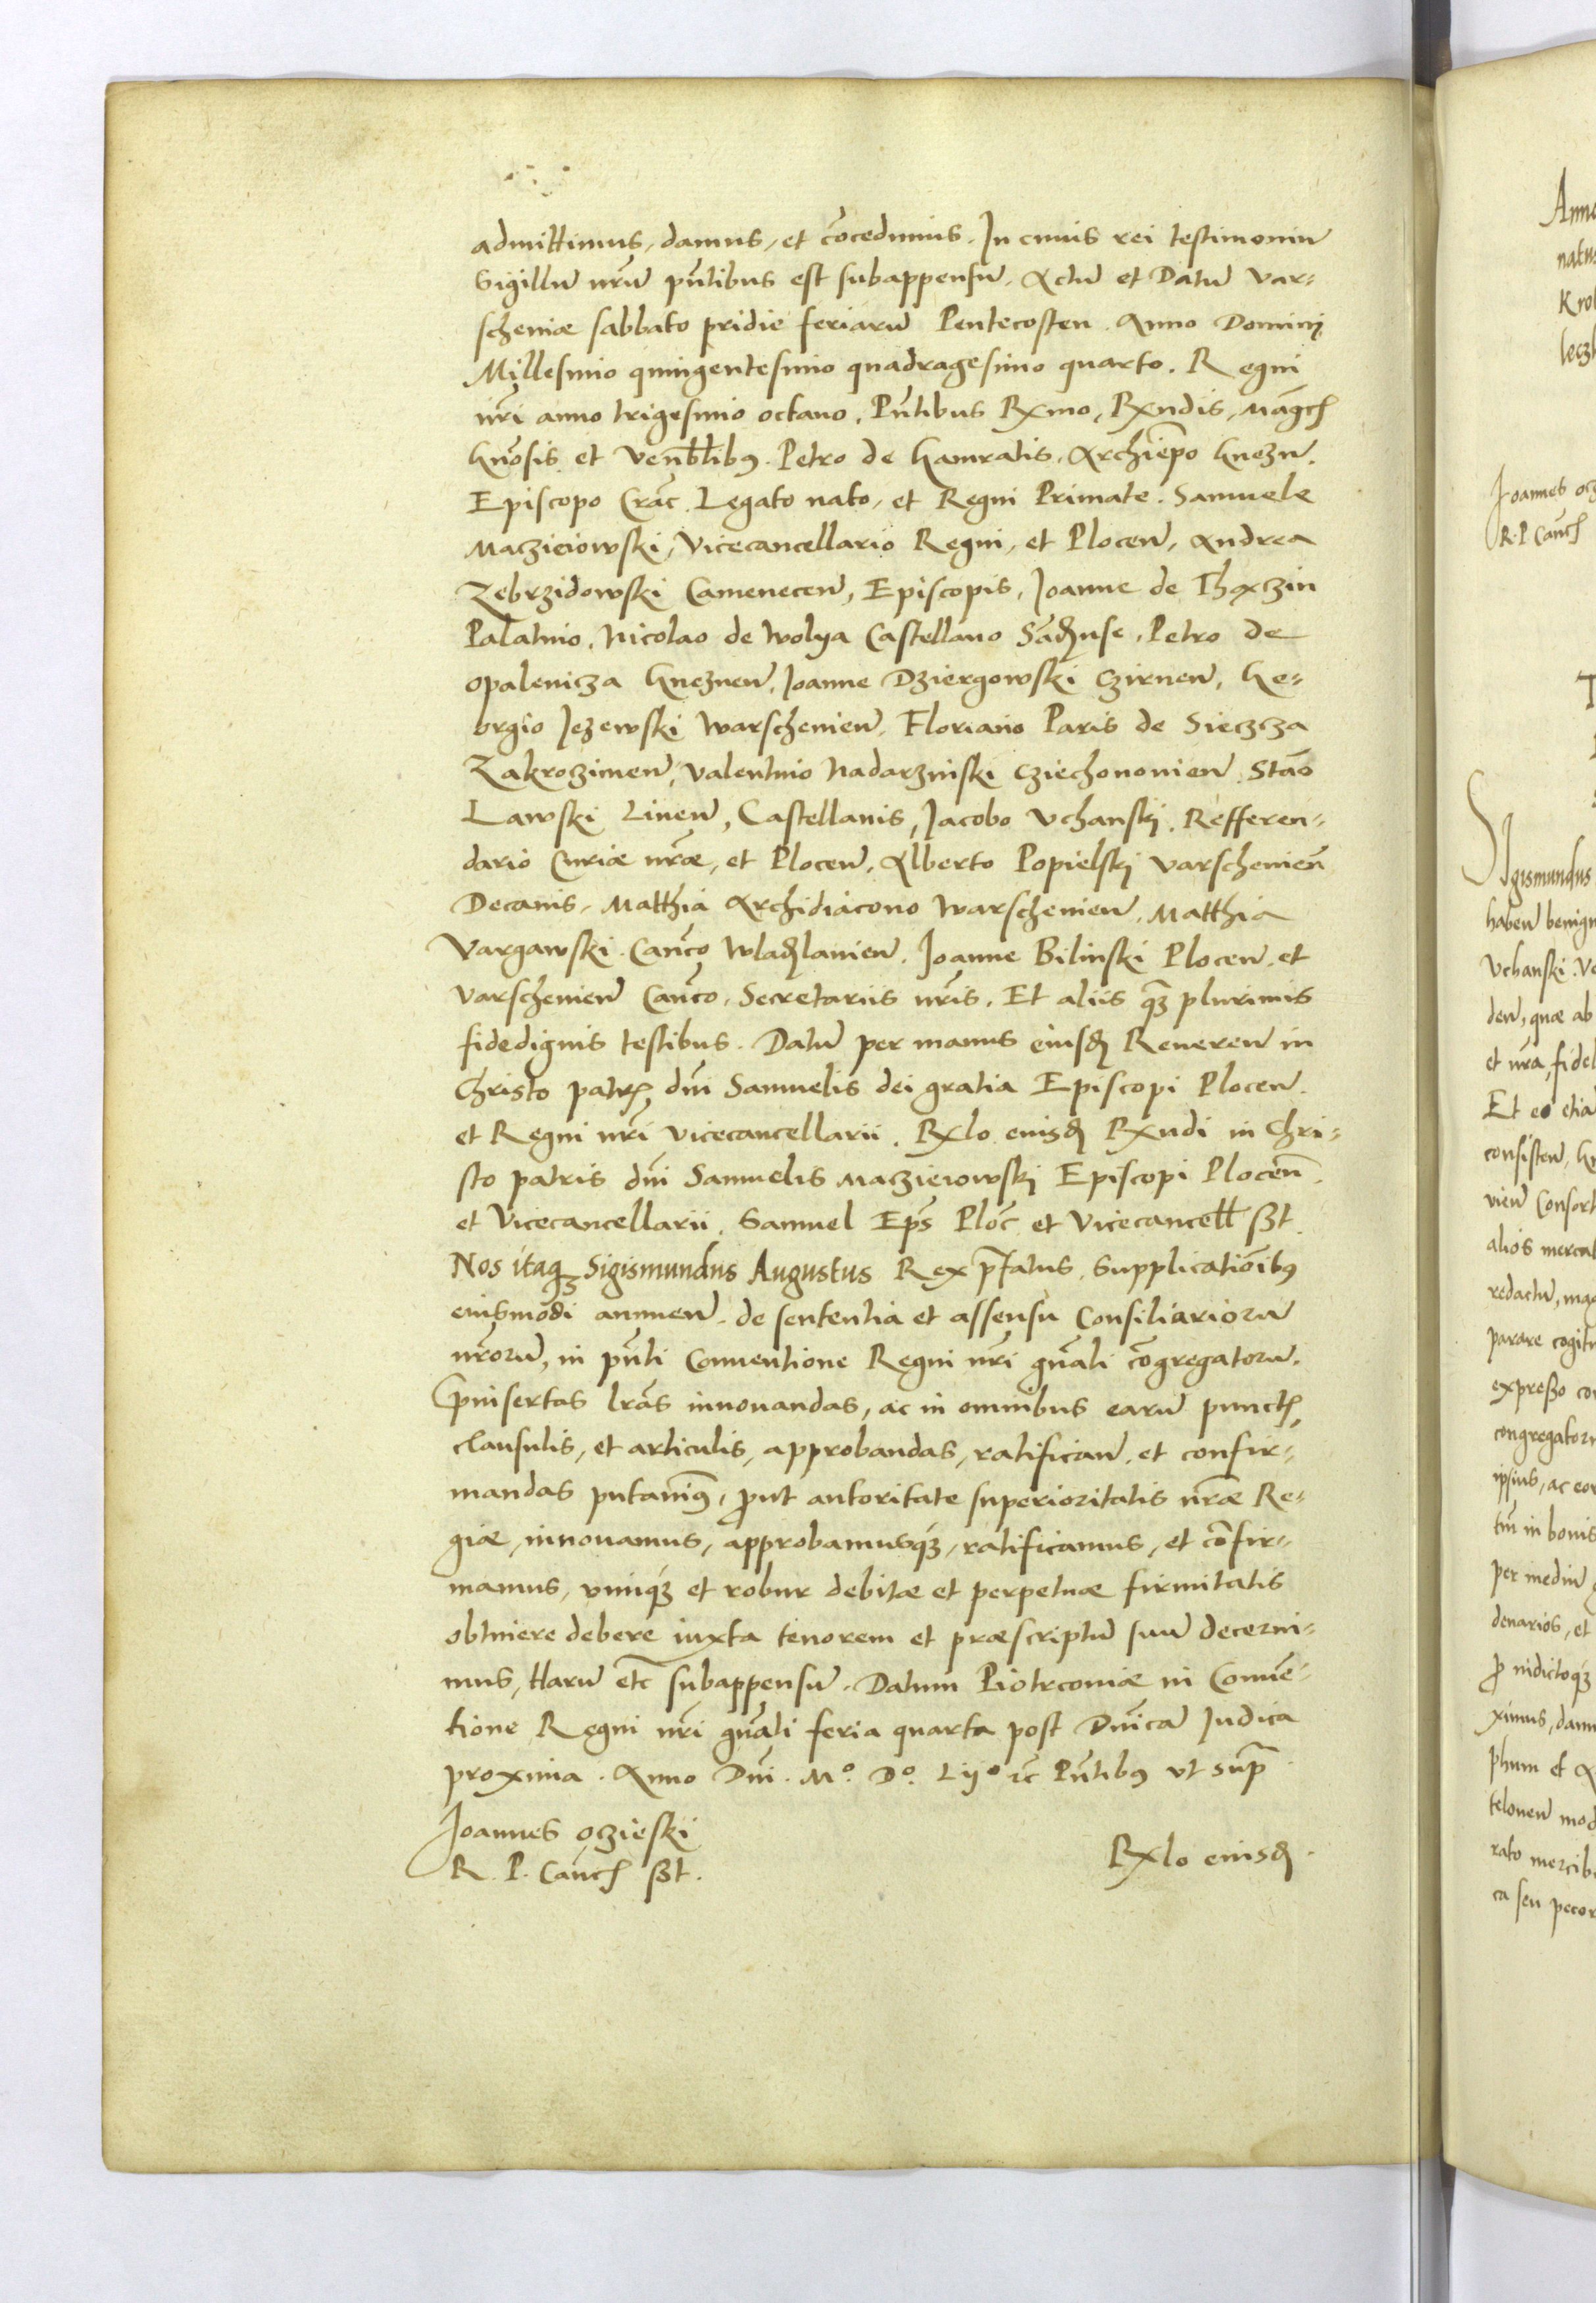 admittimus, damus, et cōcedimus. In cuius rei testimoniū
Sigillū nrm̄ pn̄tibus est subappensū. Actū et Datū Var-
scheuiæ sabbato pridie feriarū Pentecosten. Anno Domini
Millesimo quingentesimo quadragesimo quarto. Regni
nrī anno trigesimo octauo. Pn̄tibus Rx̄mo, Rx̄ndis, Magcis
Gn̄osis et Venblibus. Petro de Gamratis, Archiepō Gnezn.
Episcopo Crac̄. Legato nato, et Regni Primate. Samuele
Maczieiowski, Vicecancellario Regni, et Plocen̄, Andrea
Zebrzidowski Camenecen̄, Episcopis, Joanne de Thączin
Palatino, Nicolao de Wolya Castellano Sādnse, Petro de
Opalenicza Gneznen̄, Joanne Dziergowski Czirnen̄, Ge-
orgio Jezewski Warscheuien̄, Floriano Paris de Sieczcza
Zakroczimen̄, Valentino Nadarzinski Cziechonouien̄. Stāo
Lawski Linen̄, Castellanis, Jacobo Vchanski, Refferen-
dario Curiæ nrǣ, et Plocen̄, Alberto Popielski Varscheuien̄
Decanis, Matthia Archidiacono Warscheuien̄, Matthia
Vargawski Canc̄o Wladislauien̄. Joanne Bilinski Plocen̄. et
Varscheuien̄ Can̄co, Secretariis nrīs. Et aliis qz plurimis
fidedignis testibus. Datū per manus eiusd Reueren̄ in
Christo patris dn̄i Samuelis dei gratia Episcopi Plocen̄.
et Regni nrī Vicecancellarii. Rx̄lo eiusd Rx̄ndi in Chri-
sto patris dn̄i Samuelis Macziejowski Episcopi Plocen̄.
et Vicecancellarii. Samuel Ep̄s Ploc̄ et Vicecancell sst.
Nos itaqz Sigismundus Augustus Rex p̄fatus, Supplicatioībus
eiusmōdi annuen̄. de sententia et assensu Consiliariorū
nrōrū, in pn̄ti Conuentione Regni nrī gn̄ali cōgregatorū.
p̄insertas lrās innouandas, ac in omnibus earū punctis,
clausulis, et articulis, approbandas, ratifican̄. et confir-
mandas putauimus, p̱ut autoritate superioritatis nrǣ Re-
giæ, innouamus, approbamusqz, ratificamus, et cōfir-
mamus, vimqz et robur debitæ et perpetuæ firmitatis
obtinere debere iuxta tenorem et præscriptū suū decerni-
mus, Harū etc̄ subappensū. Datum Piotrcouiæ in Conuē-
tione Regni nrī gn̄ali feria quarta post Dn̄icā Judica
proxima. Anno Dn̄i. Mº. Dº. Lijº etc Pn̄tibus vt supr̄
Joannes Oczieski
R. P. Canc̄ sst.
Rx̄lo eiusd.
Anno
natus
Joannes ocz
R. P. Canc̄
Sigismundus
haben̄ benign
Vchanski. Ve
den̄, quæ ab
et nrā, fidel
Et eo etia
consisten̄,
uien̄ Consort
alios mercat
redactū,
parare cogit
expresso co
congregator
ipsius, ac eor
tm̄ in bonis
per mediū
denarios, et
p̱ indictoqz
ximus, dam
phum et
telonen̄ mod
rato mercib
ca seu pecor